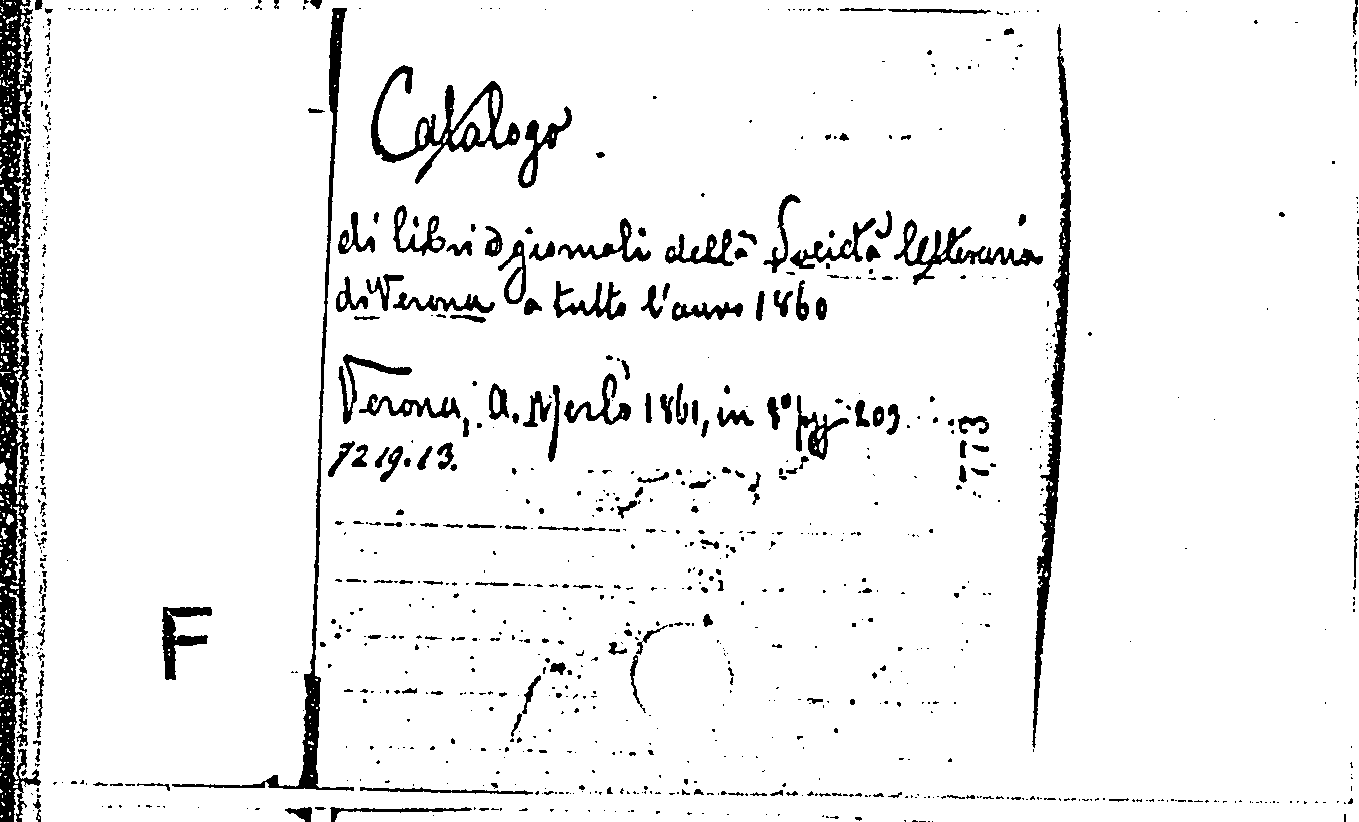 Catalogo
di libri e giornali della Società letteraria
di Verona a tutto l'anno 1860
Verona, A. Merlo 1861, in 8° pg. 209
7219.13.
773
F